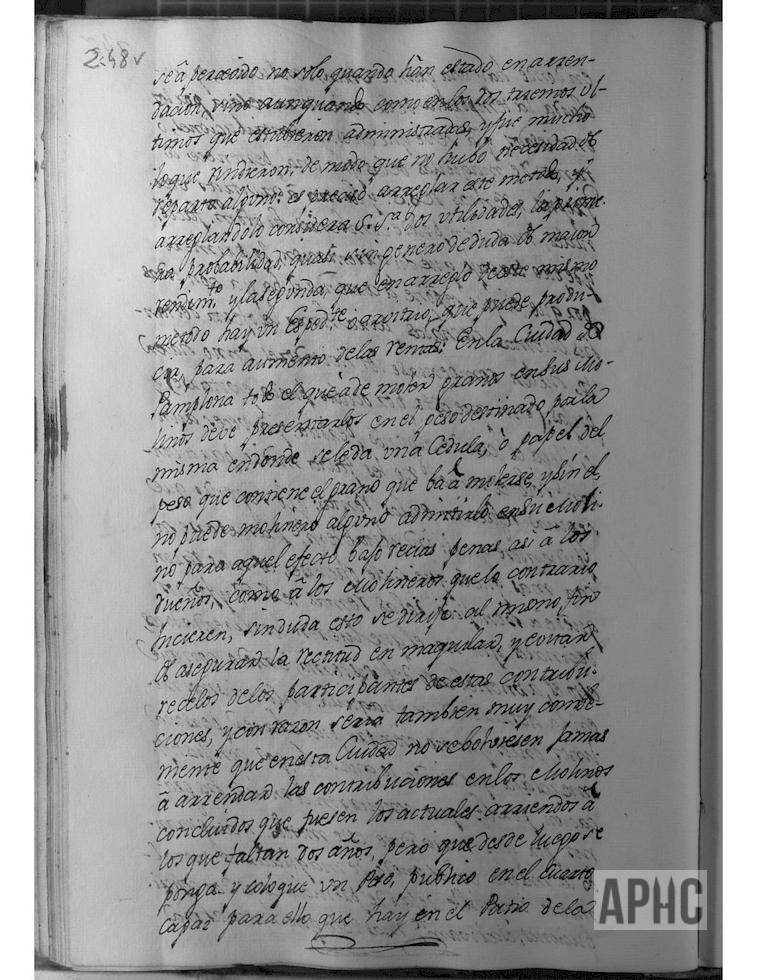 248v
se â percivido no solo quando hân estado en arren-
dacion, sino aun quando como en los dos trienios ul-
timos que estubieron administrados, y fue mucho
lo que rindieron, de modo que no hubo necesidad de
reparto alguno: es preciso arreglar este metodo, y
arreglandolo considera S. Sª dos utilidades, la prime-
ra probabilidad, quasi sin genero de duda de maior
rendimto y la segunda, que en arreglo de este mismo
metodo hay un Expedte o arvitrio, que puede produ-
cir, para aumento de las rentas: En la Ciudad de
Pamplona todo el que â de moler granos en sus Mo-
linos debe presentarlos en el peso destinado por la
misma en donde se le da una Cedula, ò papel del
peso que contiene el grano que ba â molerse, y sin el,
no puede molinero alguno admitirlo en su Moli-
no para aquel efecto bajo recias penas asi â los
dueños, como â los Molineros que lo contrario
hicieren, sin duda esto se dirije al mismo fin
de asegurar la rectitud en maquilar, y evitar
recelos de los participantes de estas contribu-
ciones, y con razon sería tambien muy combe-
niente que en esta Ciudad no se bolviesen jamas
â arrendar las contribuciones en los Molinos
concluidos que fuesen los actuales arriendos â
los que faltan dos años, pero que desde luego se
ponga y coloque un Peso, publico en el Cuarto
capaz para ello que hay en el Patio de la
APHC